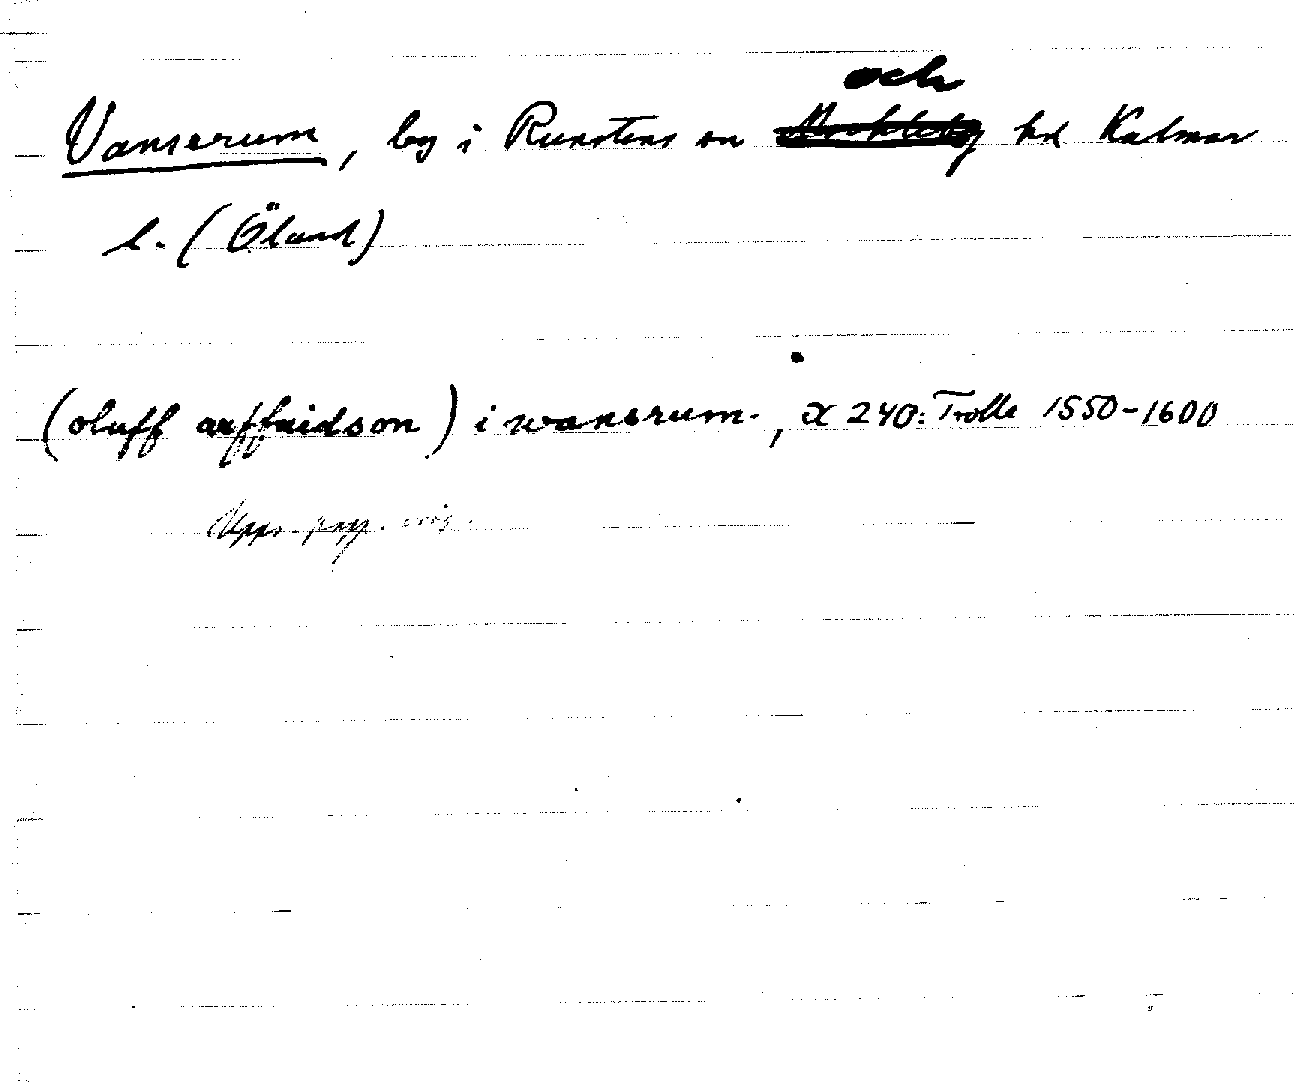 Vanserum, by i Runstens sn och hd Kalmar
l. (Öland)
(oluff arffuidson) i wanerum., X 240: Trolle 1550-1600
Upps.